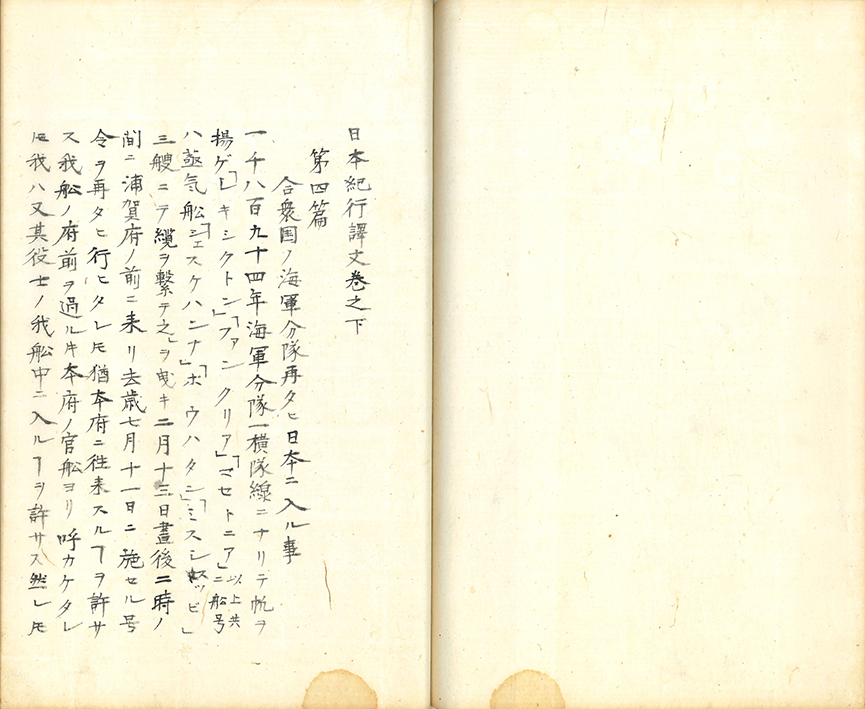 日本紀行譯文巻之下
第四篇
合衆国ノ海軍分隊再タヒ日本ニ入ル事
一千八百九十四年海軍分隊一横隊線ニナリテ帆ヲ
揚ゲ「レキシクトン」「ファンクリア」「マセトニア」以上共ニ船号
ハ蒸気船「シェスケハンナ」「ポウハタン」「ミスシスッピ」
三艘ニテ纜ヲ繋テ之ヲ曳キ二月十三日晝後二時ノ
間ニ浦賀府ノ前ニ来リ去歳七月十一日ニ施セル号
令ヲ再タヒ行ヒタレ𪜈猶本府ニ往来スルヿヲ許サ
ス我船ノ府前ヲ過ルキ本府ノ官船ヨリ呼カケタレ
𪜈我ハ又其役士ノ我船中ニ入ルヿヲ許サス然レ𪜈